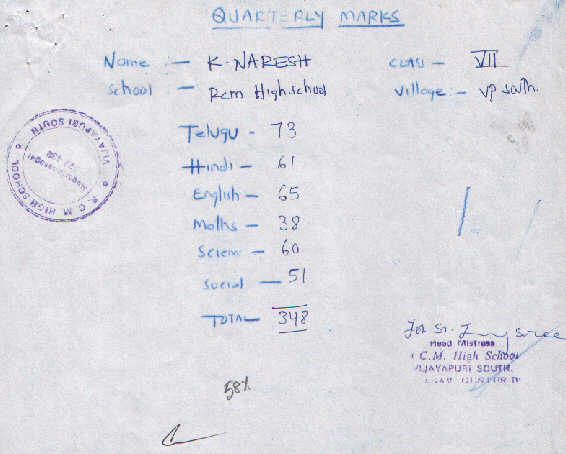 QUARTERLY MARKS
Name :- K. NARESH CLASS - VII
School - Rcm High.school Village:- VP South.
Telugu - 73
Hindi - 61
English - 65
Maths - 38
Scienc - 60
Social - 51
TOTAL - 348
for Sr.
Head Mistress
C.M. High School
VIJAYAPURI SOUTH.
58%
R. C. M. HIGH SCHOOL
VIJAYAPURI SOUTH